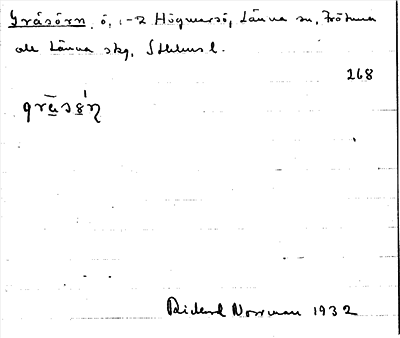 Gråsörn, ö, 1-2 Högmarsö, Länna sn, Frötuna
och Länna skg, Sthlms l.
268
Rickard Norrman 1932